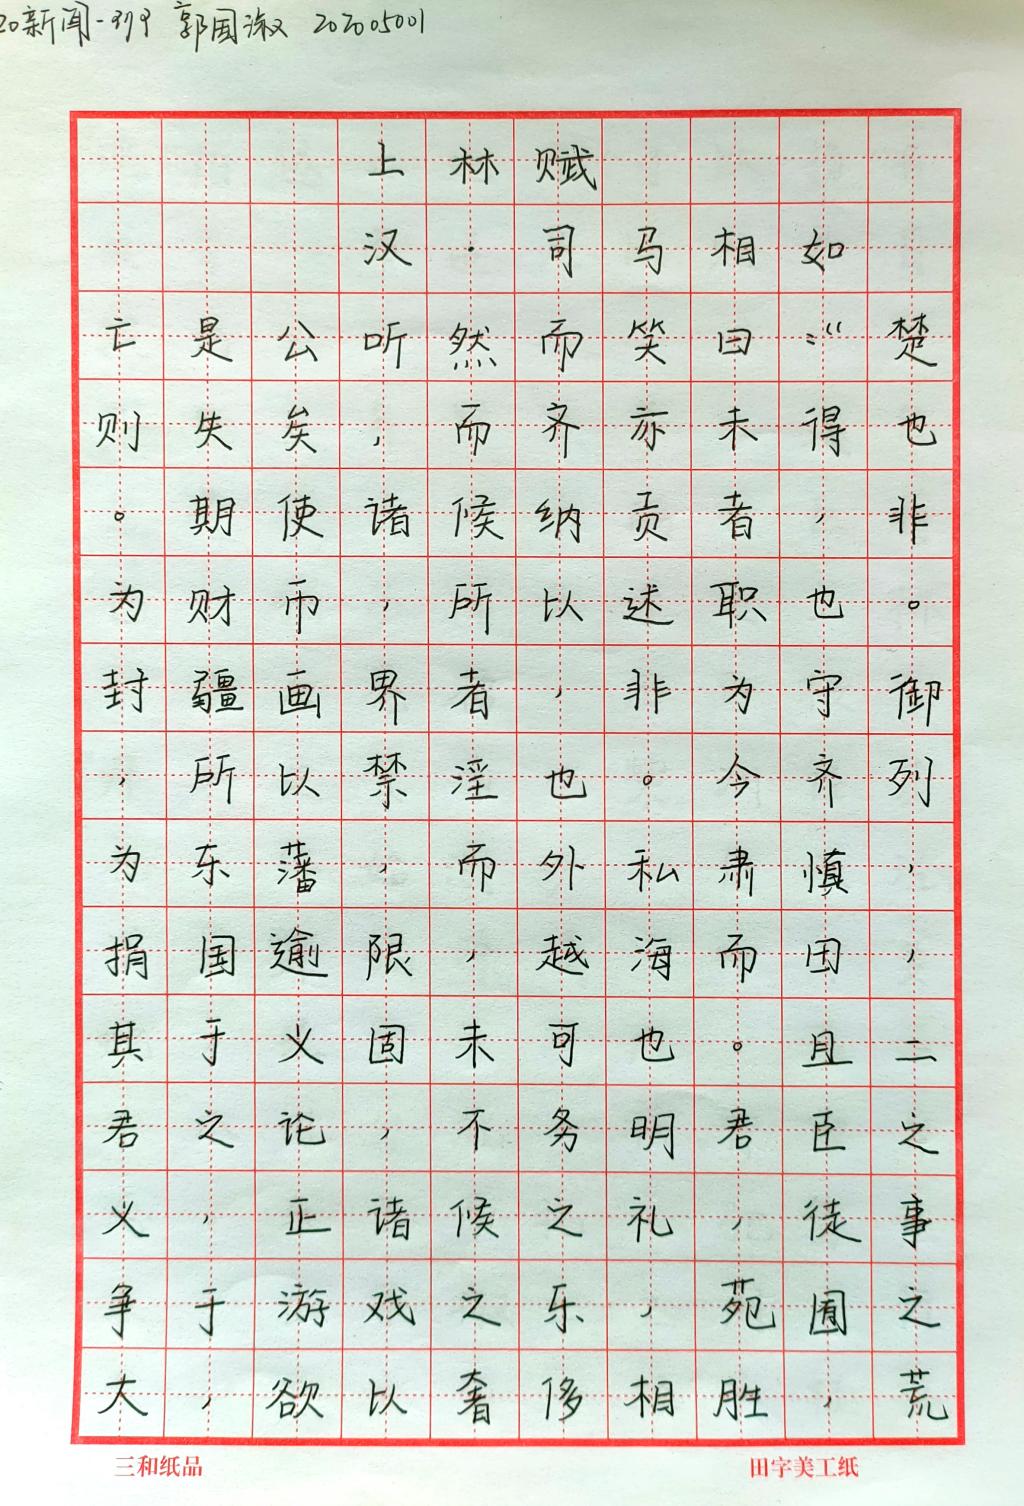 20新闻-319 郭国淑 202005001
上林赋
汉·司马相如
亡是公听然而笑曰:“楚
则失矣,而齐亦未得也
。期使诸候纳贡者,非
为财币,所以述职也。
封疆画界者,非为守御
,所以禁淫也。今齐列
为东藩,而外私肃慎,
捐国逾限,越海而田,
其于义固未可也。且二
君之论,不务明君臣之
义,正诸候之礼,徒事
争于游戏之乐,苑囿之
大,欲以奢侈相胜,荒
三和纸品 田字美工纸